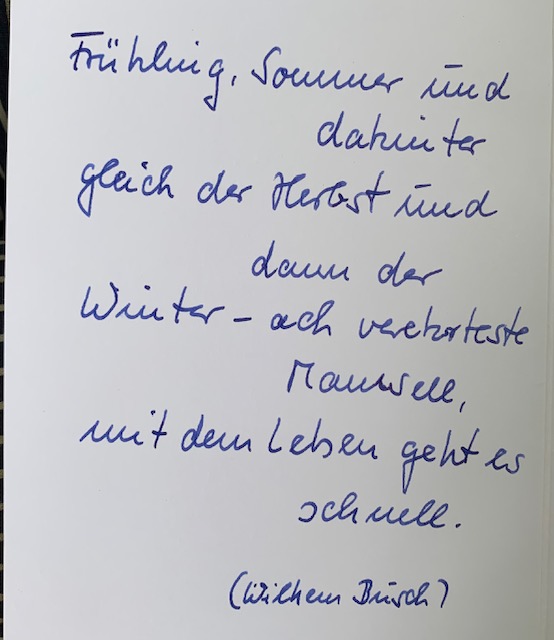 Frühling, Sommer und
dahinter
gleich der Herbst und
dann der
Winter – ach verehrteste
Mamsell,
mit dem Leben geht es
schnell.
(Wilhelm Busch)